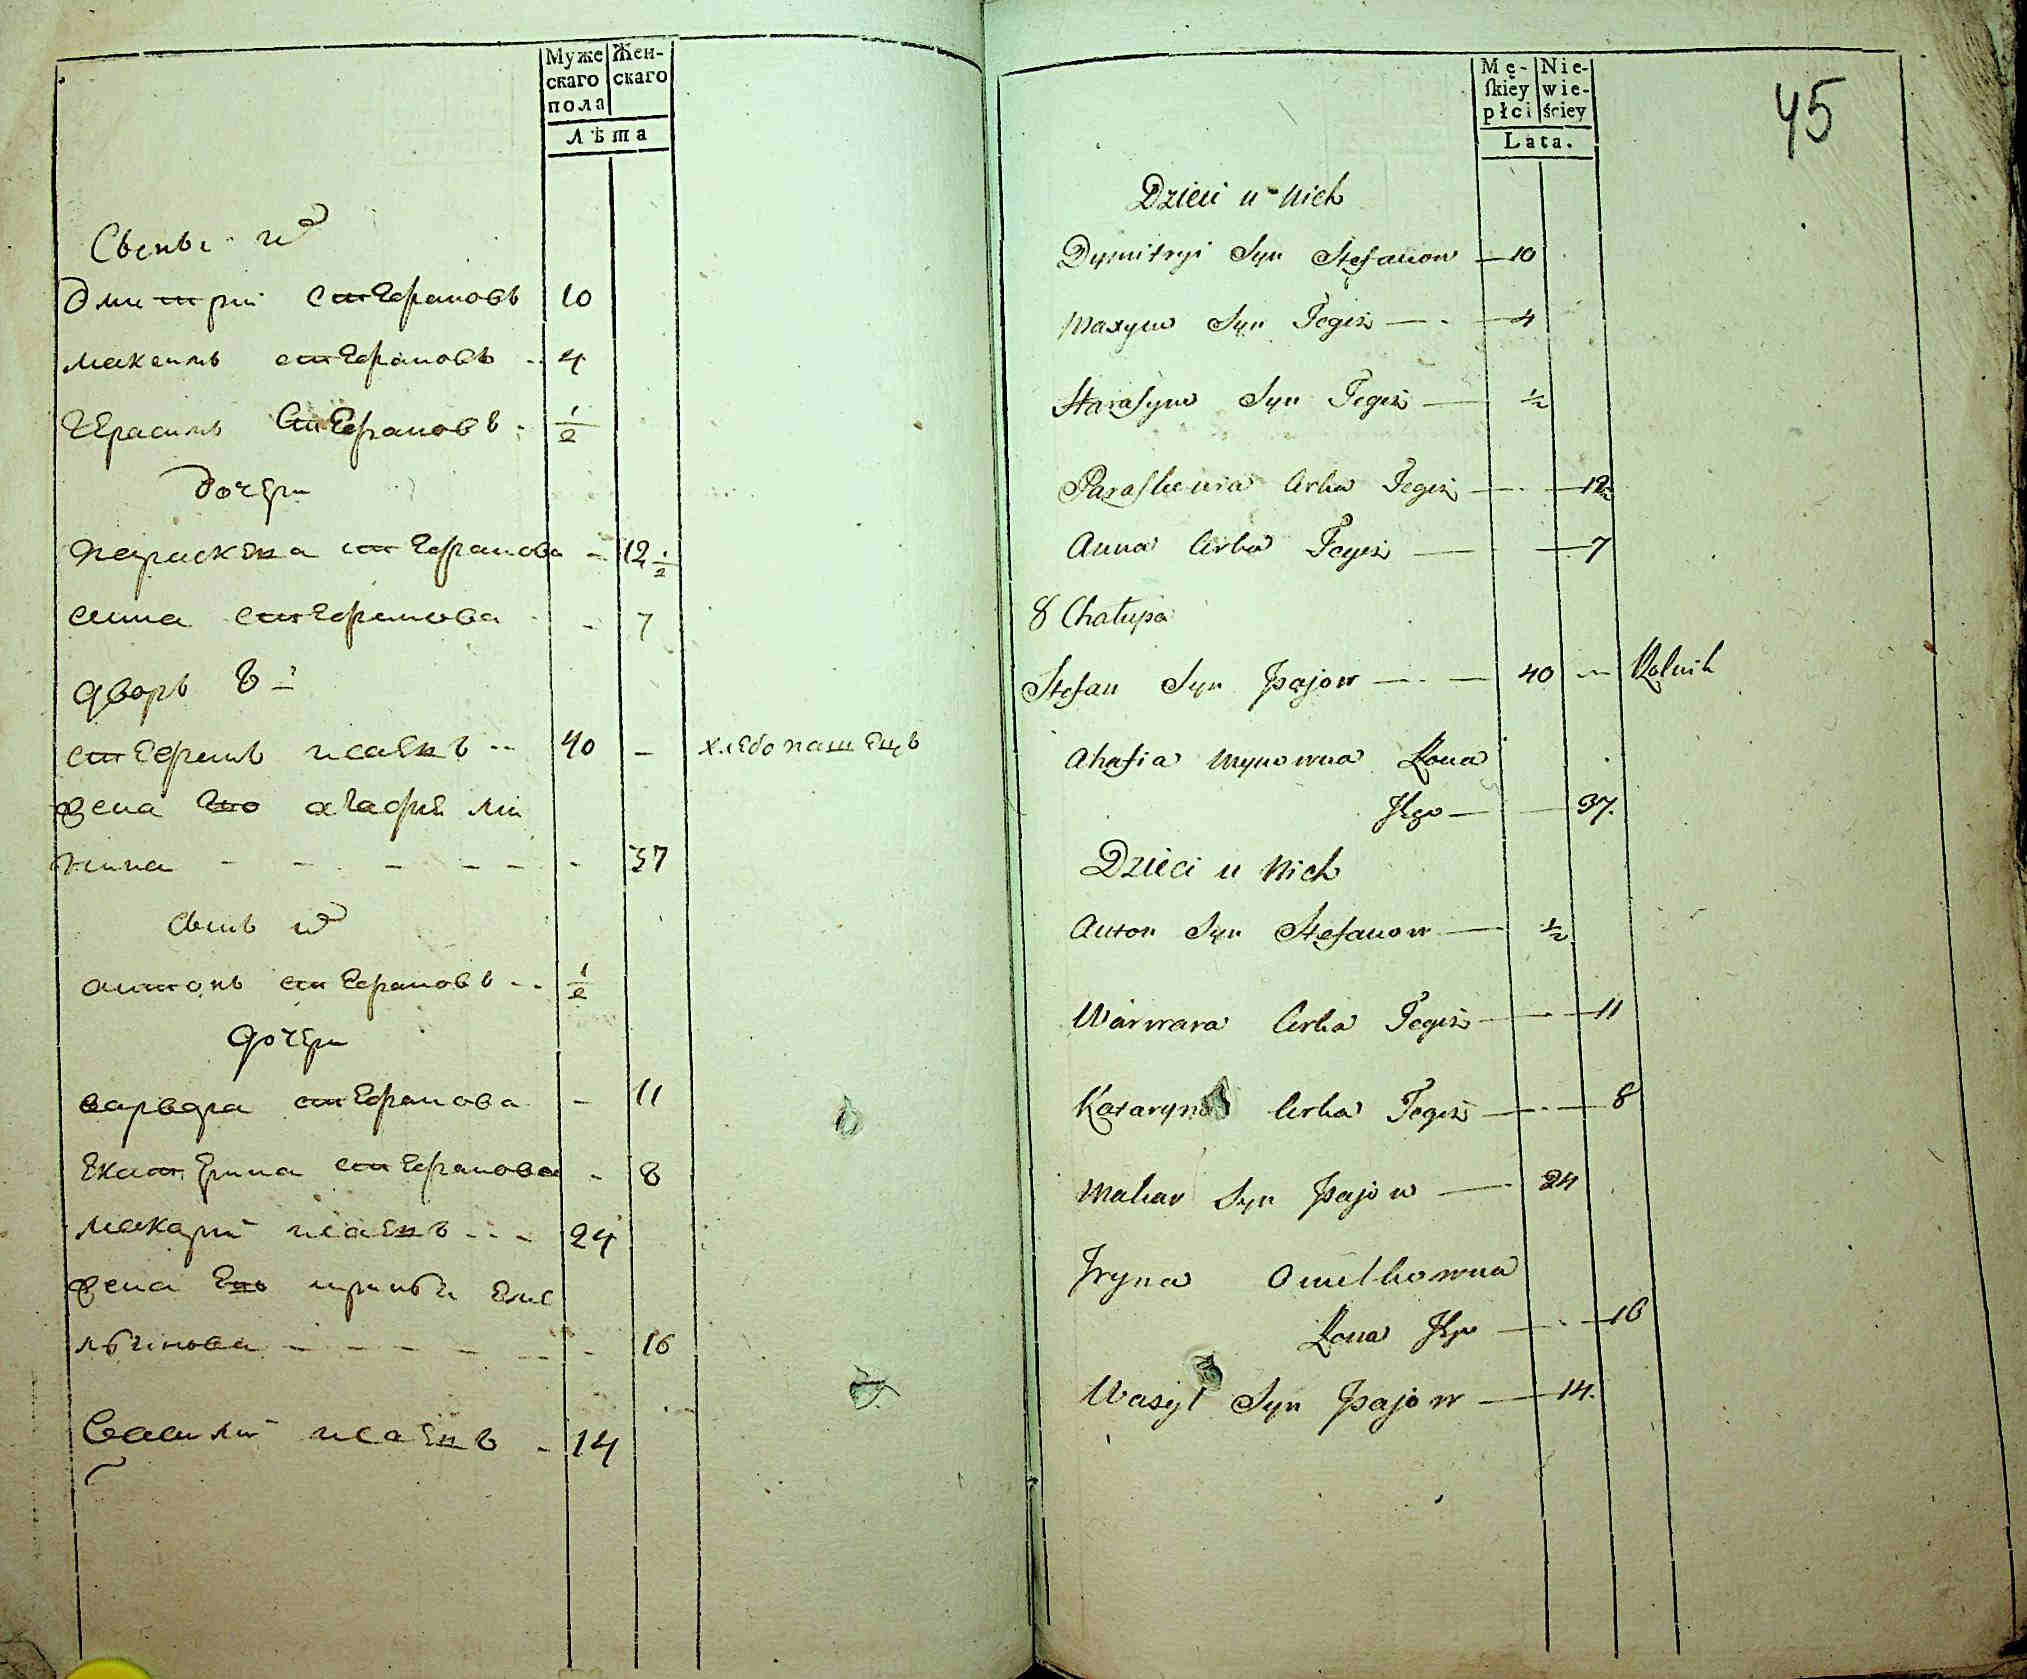 Муже
скаго
пола
Жен-
скаго
Лѣта
Сыны и
Дмитрій Стефановъ 10
Максимъ Стефановъ 4
Герасимъ Стефановъ 1/2
Дочери
Параскева Стефанова 12 1/2
Анна Стефанова 7
Дворъ 8й
Стефанъ Исаевъ 40 — хлебопашецъ
Жена его Агафия Ми
нина 37
Сынъ и
Антонъ Стефановъ 1/2
Дочери
Варвара Стефанова 11
Екатерина Стефанова 8
Макарий Исаевъ 24
Жена его Ирина Еме
льянова 16
Василий Исаевъ 14
Mę-
skiey
płci
Nie-
wie-
ściey
Lata.
45
Dzieci u Nich
Dymitryi Syn Stefanow 10
Maxym Syn Tegiż 4
Harasym Syn Tegiż 1/2
Paraskewia Crka Tegiż 12
Anna Crka Tegiż 7
8 Chałupa
Stefan Syn Jsajow 40 — Rolnik
Ahafia Mynowna Żona
Jego 37.
Dzieci u Nich
Anton Syn Stefanow 1/2
Warwara Crka Tegiż 11
Kataryna Crka Tegiż 8
Makar Syn Jsajow 24
Jryna Omelkowna
Żona Jego 16
Wasyl Syn Jsajow 14.